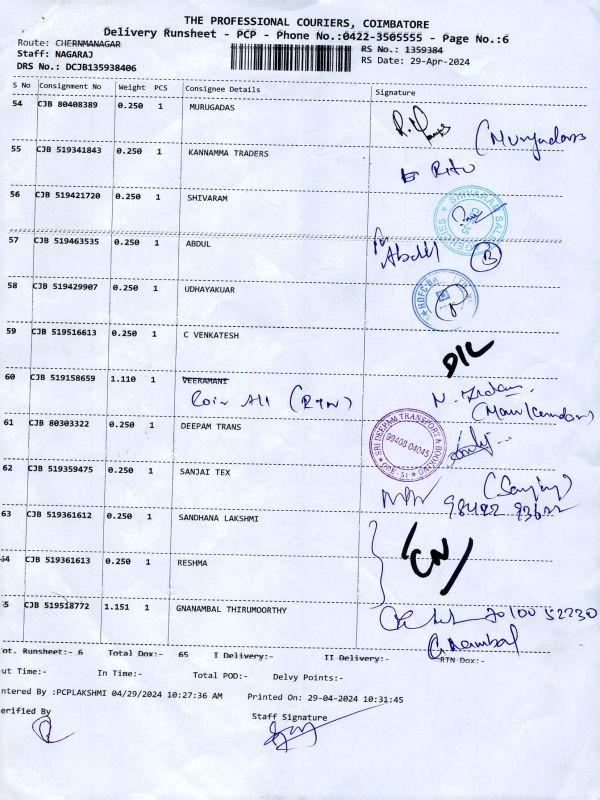 THE PROFESSIONAL COURIERS, COIMBATORE
Delivery Runsheet - PCP - Phone No.:0422-3505555 - Page No.:6
Route: CHERNMANAGAR
RS No.: 1359384
Staff: NAGARAJ
RS Date: 29-Apr-2024
DRS No.: DCJB135938406
S No Consignment No Weight PCS Consignee Details Signature
54 CJB 80408389 0.250 1 MURUGADAS
55 CJB 519341843 0.250 1 KANNAMMA TRADERS
56 CJB 519421720 0.250 1 SHIVARAM
SHIVARAM SALES AGENCIES
57 CJB 519463535 0.250 1 ABDUL Abdul B
58 CJB 519429907 0.250 1 UDHAYAKUAR
HDFC BA
59 CJB 519516613 0.250 1 C VENKATESH
D/L
60 CJB 519158659 1.110 1 VEERAMANI
61 CJB 80303322 0.250 1 DEEPAM TRANS
SRI DEEPAM TRANSPORT & BOOKING
99408 04045
62 CJB 519359475 0.250 1 SANJAI TEX
(Sanjay)
63 CJB 519361612 0.250 1 SANDHANA LAKSHMI
(CN)
54 CJB 519361613 0.250 1 RESHMA
5 CJB 519518772 1.151 1 GNANAMBAL THIRUMOORTHY
70100 52230
G. Nambal
ot. Runsheet:- 6 Total Dox:- 65 I Delivery:- II Delivery:- RTN Dox:-
ut Time:- In Time:- Total POD:- Delvy Points:-
ntered By :PCPLAKSHMI 04/29/2024 10:27:36 AM Printed On: 29-04-2024 10:31:45
erified By Staff Signature